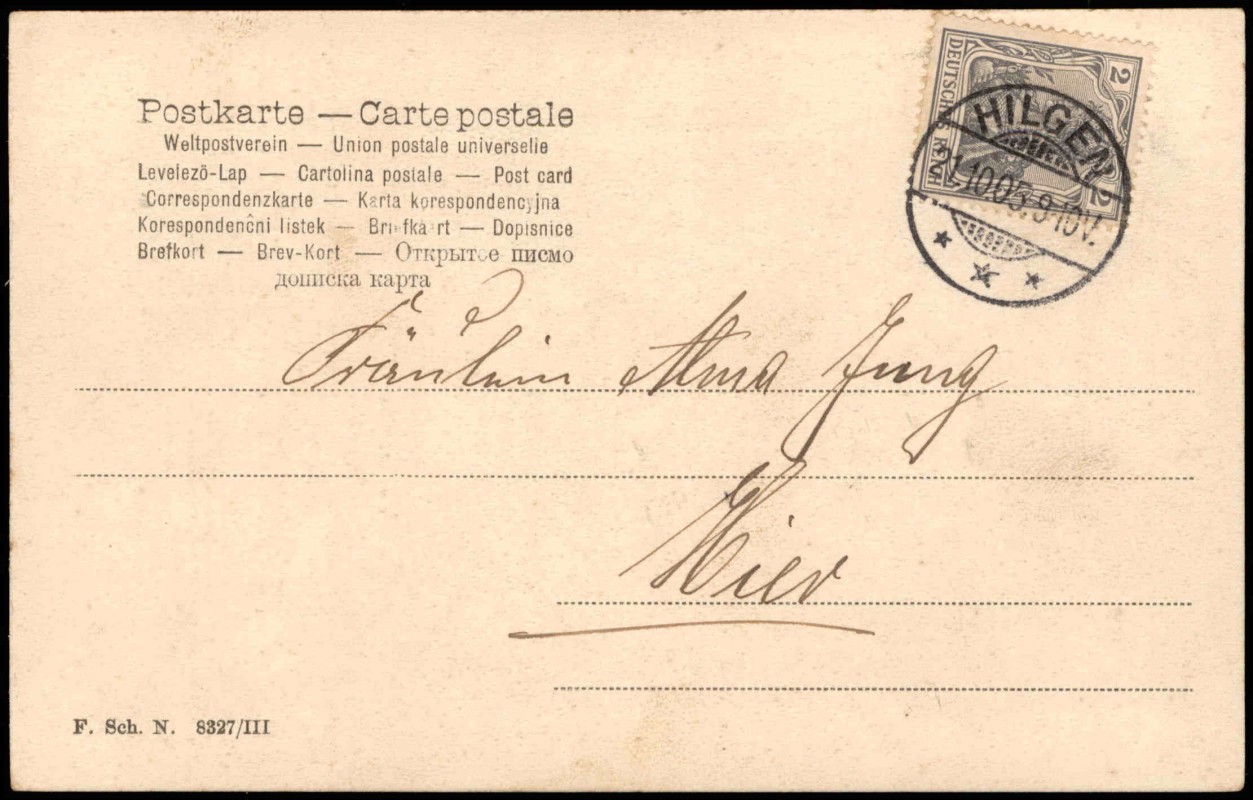 Postkarte — Carte postale
Weltpostverein — Union postale universelle
Levelezö-Lap — Cartolina postale — Post card
Correspondenzkarte — Karta korespondencyjna
Korespondenĉni listek — Briefkaart — Dopisnice
Brefkort — Brev-Kort — Открытое письмо
дописна карта
2
DEUTSCHES REICH
2
HILGEN
21.10.05. 9-10V.
Fräulein Alma Jung
Hier
F. Sch. N. 8327/III